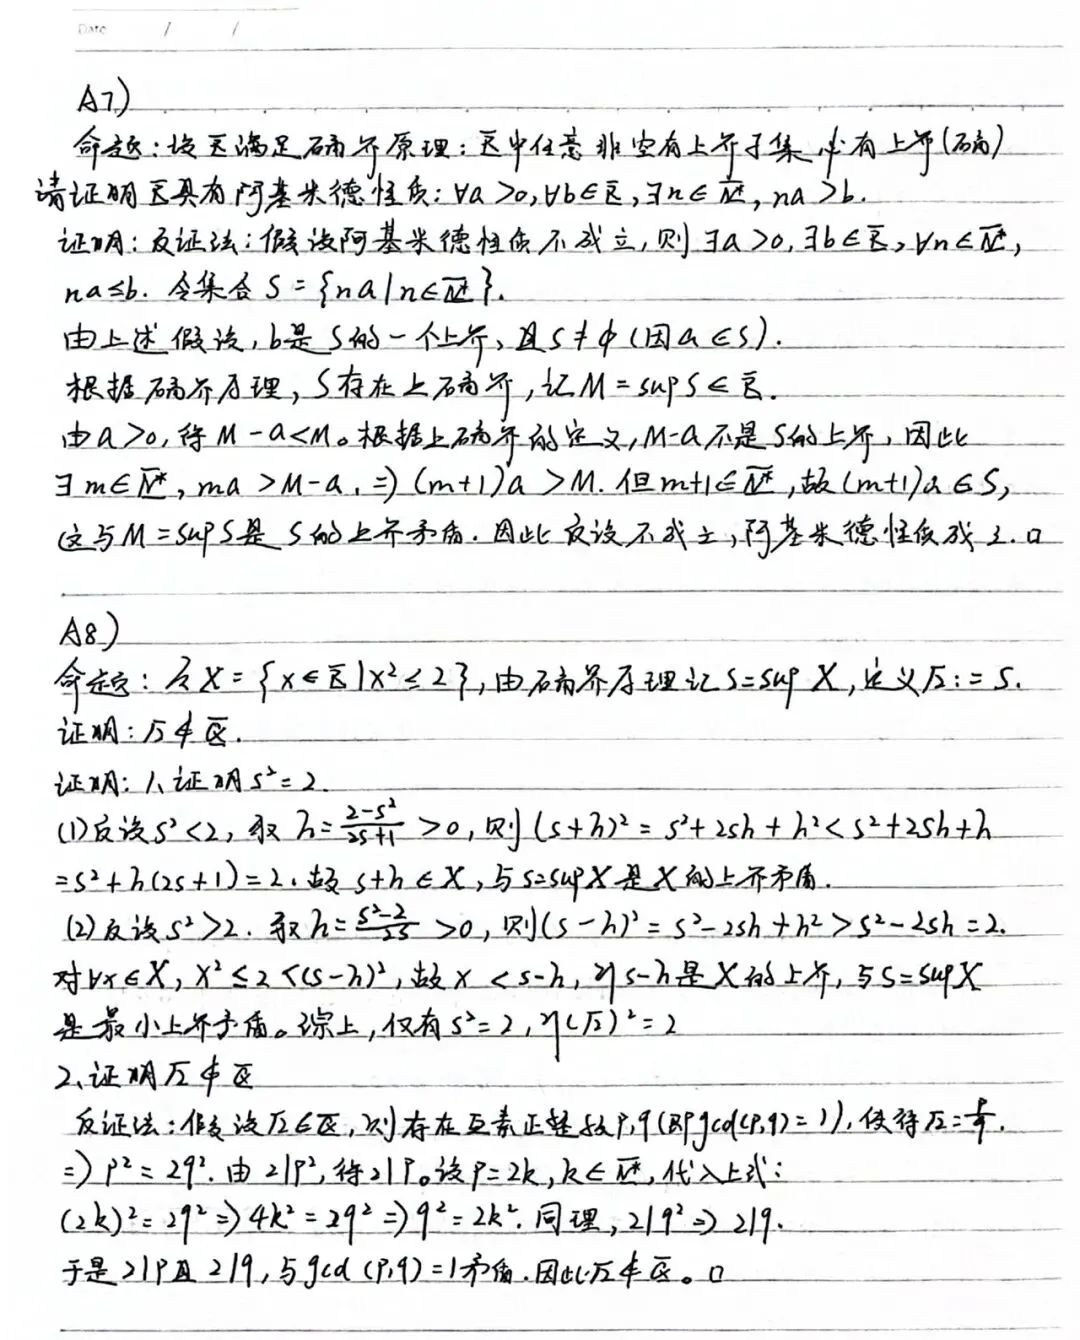 Date / /
A7)
命题:设ℝ满足确界原理:ℝ中任意非空有上界子集必有上界(确)
请证明ℝ具有阿基米德性质:∀a>0,∀b∈ℝ,∃n∈ℕ*,na>b.
证明:反证法:假设阿基米德性质不成立,则∃a>0,∃b∈ℝ,∀n∈ℕ*,
na≤b. 令集合S={na|n∈ℕ*}.
由上述假设,b是S的一个上界,且S≠ϕ(因a∈S).
根据确界原理,S存在上确界,记M=supS∈ℝ.
由a>0,得M-a<M。根据上确界的定义,M-a不是S的上界,因此
∃m∈ℕ*,ma>M-a.⇒(m+1)a>M.但m+1∈ℕ*,故(m+1)a∈S,
这与M=supS是S的上界矛盾.因此反设不成立,阿基米德性质成立.□
A8)
命题:令X={x∈ℝ|x²≤2},由确界原理记s=sup X,定义√2:=s.
证明:√2∉ℚ.
证明:1、证明s²=2.
(1)反设s²<2,取h=\frac{2-s²}{2s+1}>0,则(s+h)²=s²+2sh+h²<s²+2sh+h
=s²+h(2s+1)=2.故s+h∈X,与s=supX是X的上界矛盾.
(2)反设s²>2.取h=\frac{s²-2}{2s}>0,则(s-h)²=s²-2sh+h²>s²-2sh=2.
对∀x∈X,x²≤2<(s-h)²,故x<s-h,则s-h是X的上界,与s=supX
是最小上界矛盾。综上,仅有s²=2,则(√2)²=2
2、证明√2∉ℚ
反证法:假设√2∈ℚ,则存在互素正整数p,q(即gcd(p,q)=1),使得√2=\frac{p}{q}.
⇒p²=2q².由2|p²,得2|p。设p=2k,k∈ℕ*,代入上式:
(2k)²=2q²⇒4k²=2q²⇒q²=2k².同理,2|q²⇒2|q.
于是2|p且2|q,与gcd(p,q)=1矛盾.因此√2∉ℚ。□